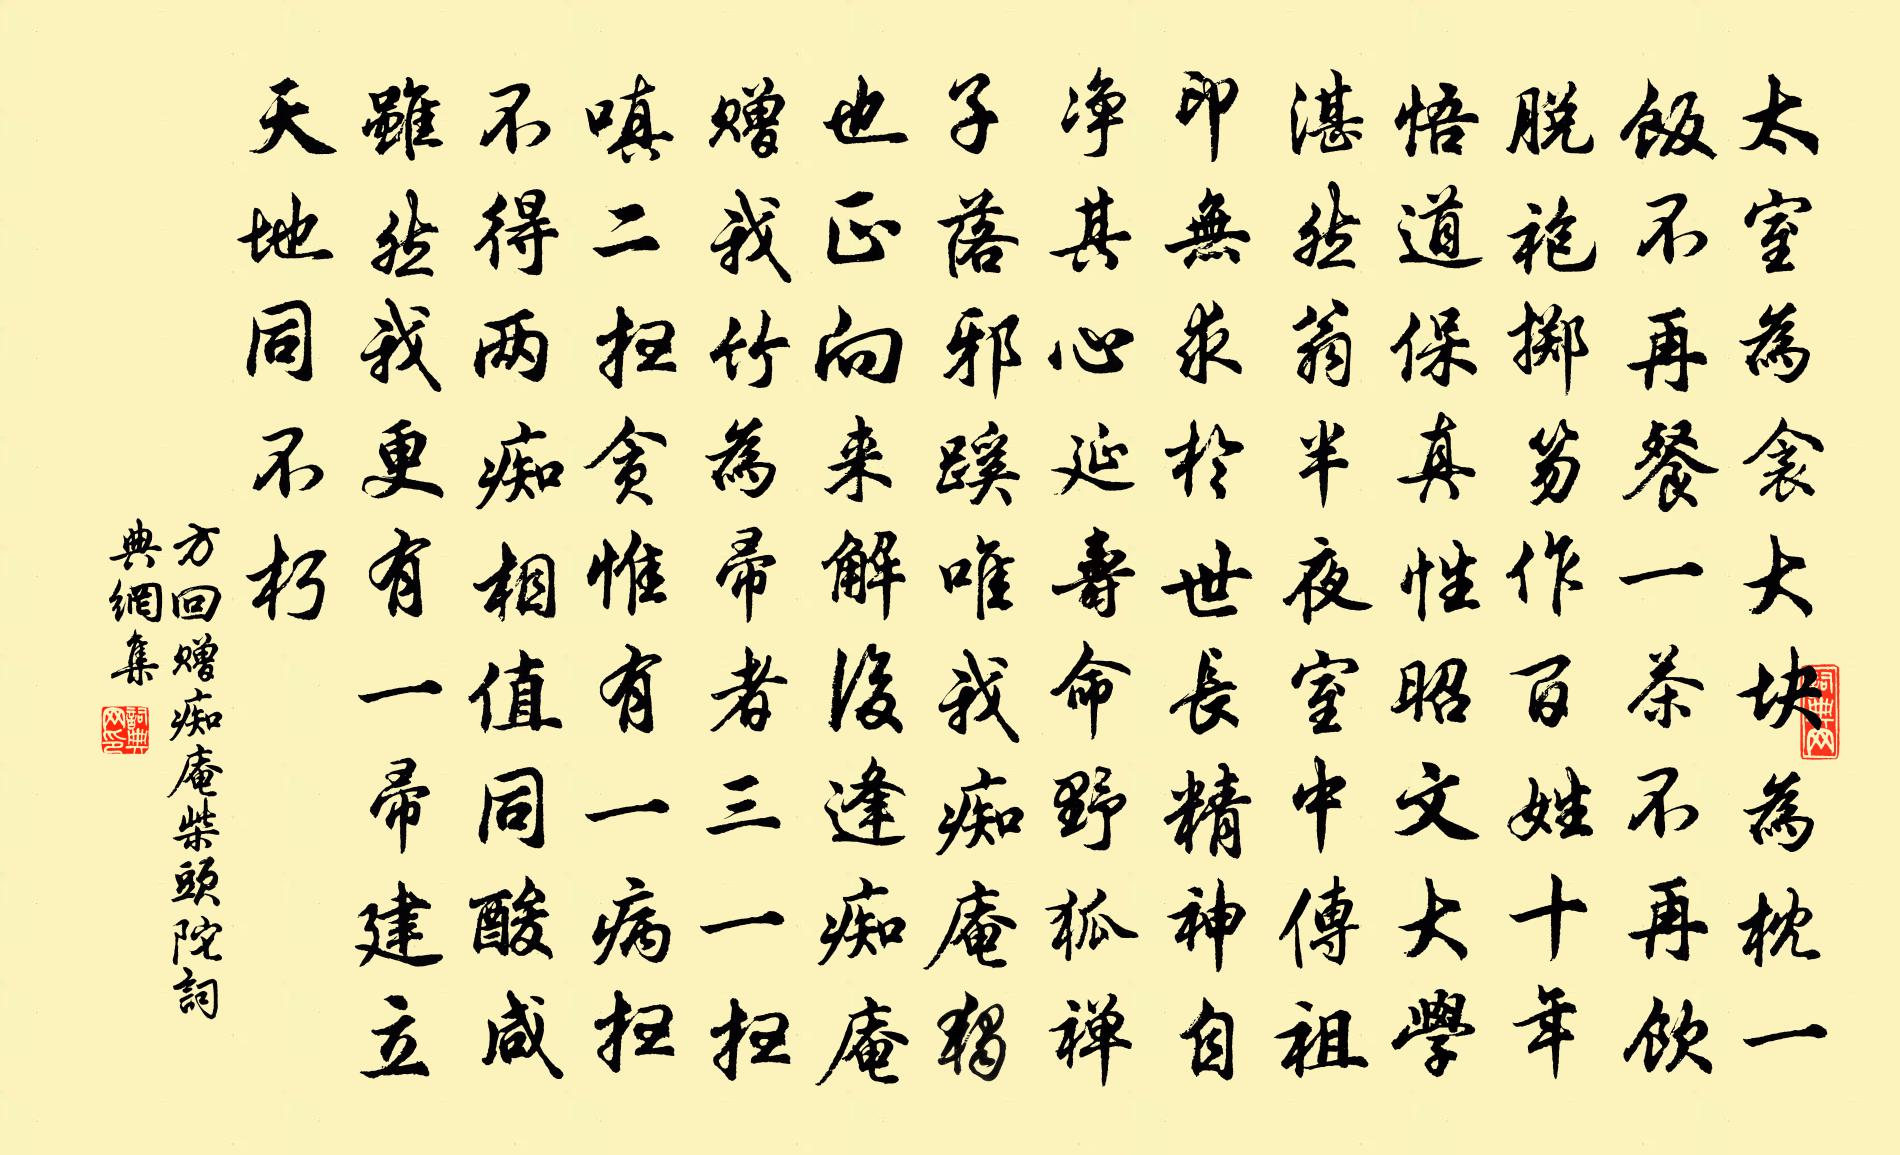 太室為衾大块為枕一
飯不再餐一茶不再飲
脱袍掷笏作百姓十年
悟道保真性昭文大學
湛然翁半夜室中傳祖
印無求於世長精神自
净其心延壽命野狐禅
子落邪蹊唯我痴庵獨
也正向来解後逢痴庵
赠我竹為帚者三一扫
嗔二扫贪惟有一病扫
不得两痴相值同酸咸
雖然我更有一帚建立
天地同不朽
方回赠痴庵柴頭陀詞
典網集
詞典网
詞典网印